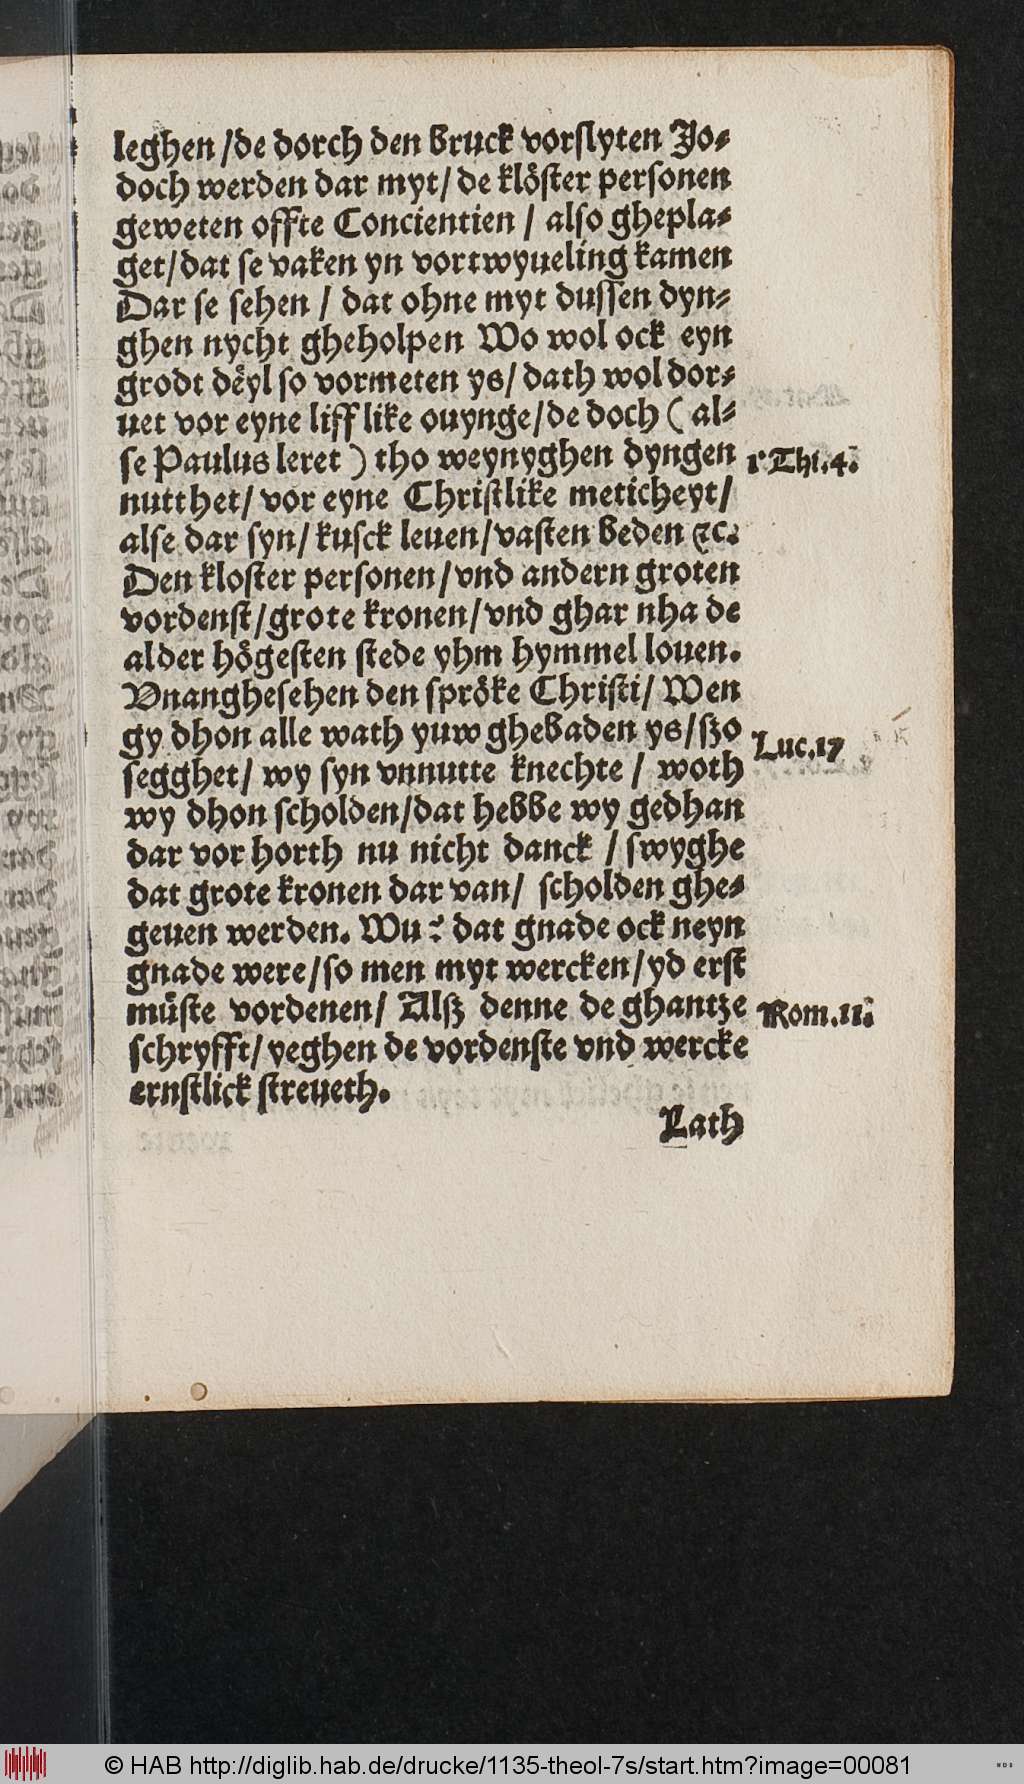 leghen /de dorch den bruck vorslyten Jo⸗
doch werden dar myt/ de klöster personen
geweten offte Concientien / also ghepla⸗
get/dat se vaken yn vortwyueling kamen
Dar se sehen / dat ohne myt dussen dyn⸗
ghen nycht gheholpen Wo wol ock eyn
grodt dëyl so vormeten ys/ dath wol dor⸗
uet vor eyne lifflike ouynge/de doch ( al⸗
se Paulus leret ) tho weynyghen dyngen
nutthet/ vor eyne Christlike meticheyt/
alse dar syn/ kusck leuen/vasten beden ꝛc.
Den kloster personen/vnd andern groten
vordenst/grote kronen/vnd ghar nha de
alder högesten stede yhm hymmel louen.
Vnanghesehen den spröke Christi/ Wen
gy dhon alle wath yuw ghebaden ys/szo
segghet/ wy syn vnnutte knechte / woth
wy dhon scholden/dat hebbe wy gedhan
dar vor horth nu nicht danck / swyghe
dat grote kronen dar van/ scholden ghe⸗
geuen werden. Wu? dat gnade ock neyn
gnade were/so men myt wercken/yd erst
müste vordenen/ Alsz denne de ghantze
schryfft/yeghen de vordenste vnd wercke
ernstlick streueth.
Lath
1 Thi.4.
Luc.17
Rom.11.
© HAB http://diglib.hab.de/drucke/1135-theol-7s/start.htm?image=00081